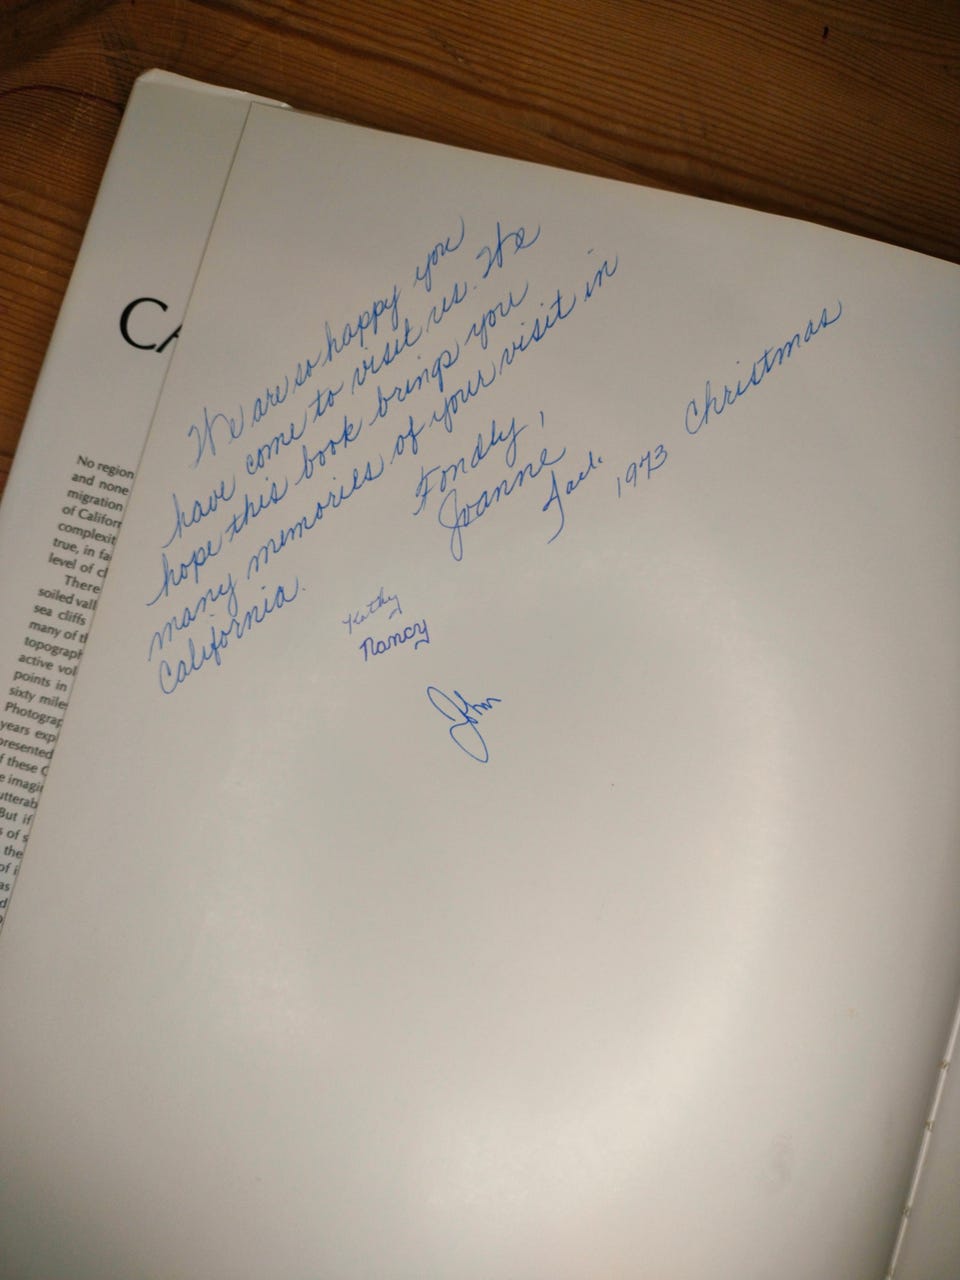 CA
No region
and none
migration
of Californ
complexit
true, in fa
level of cl
There
soiled vall
sea cliffs
many of th
topograph
active vol
points in
sixty mile
Photograp
years exp
presented
f these C
e imagi
utterab
But if
s of s
the
of i
as
d
We are so happy you
have come to visit us. We
hope this book brings you
many memories of your visit in
California.
Fondly,
Joanne
Jack
1973 Christmas
Kathy
Nancy
John